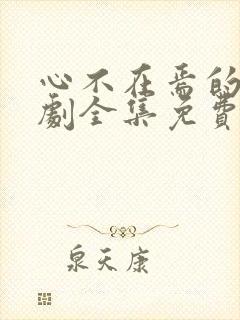 心不在焉的
劇全集免費
泉天康